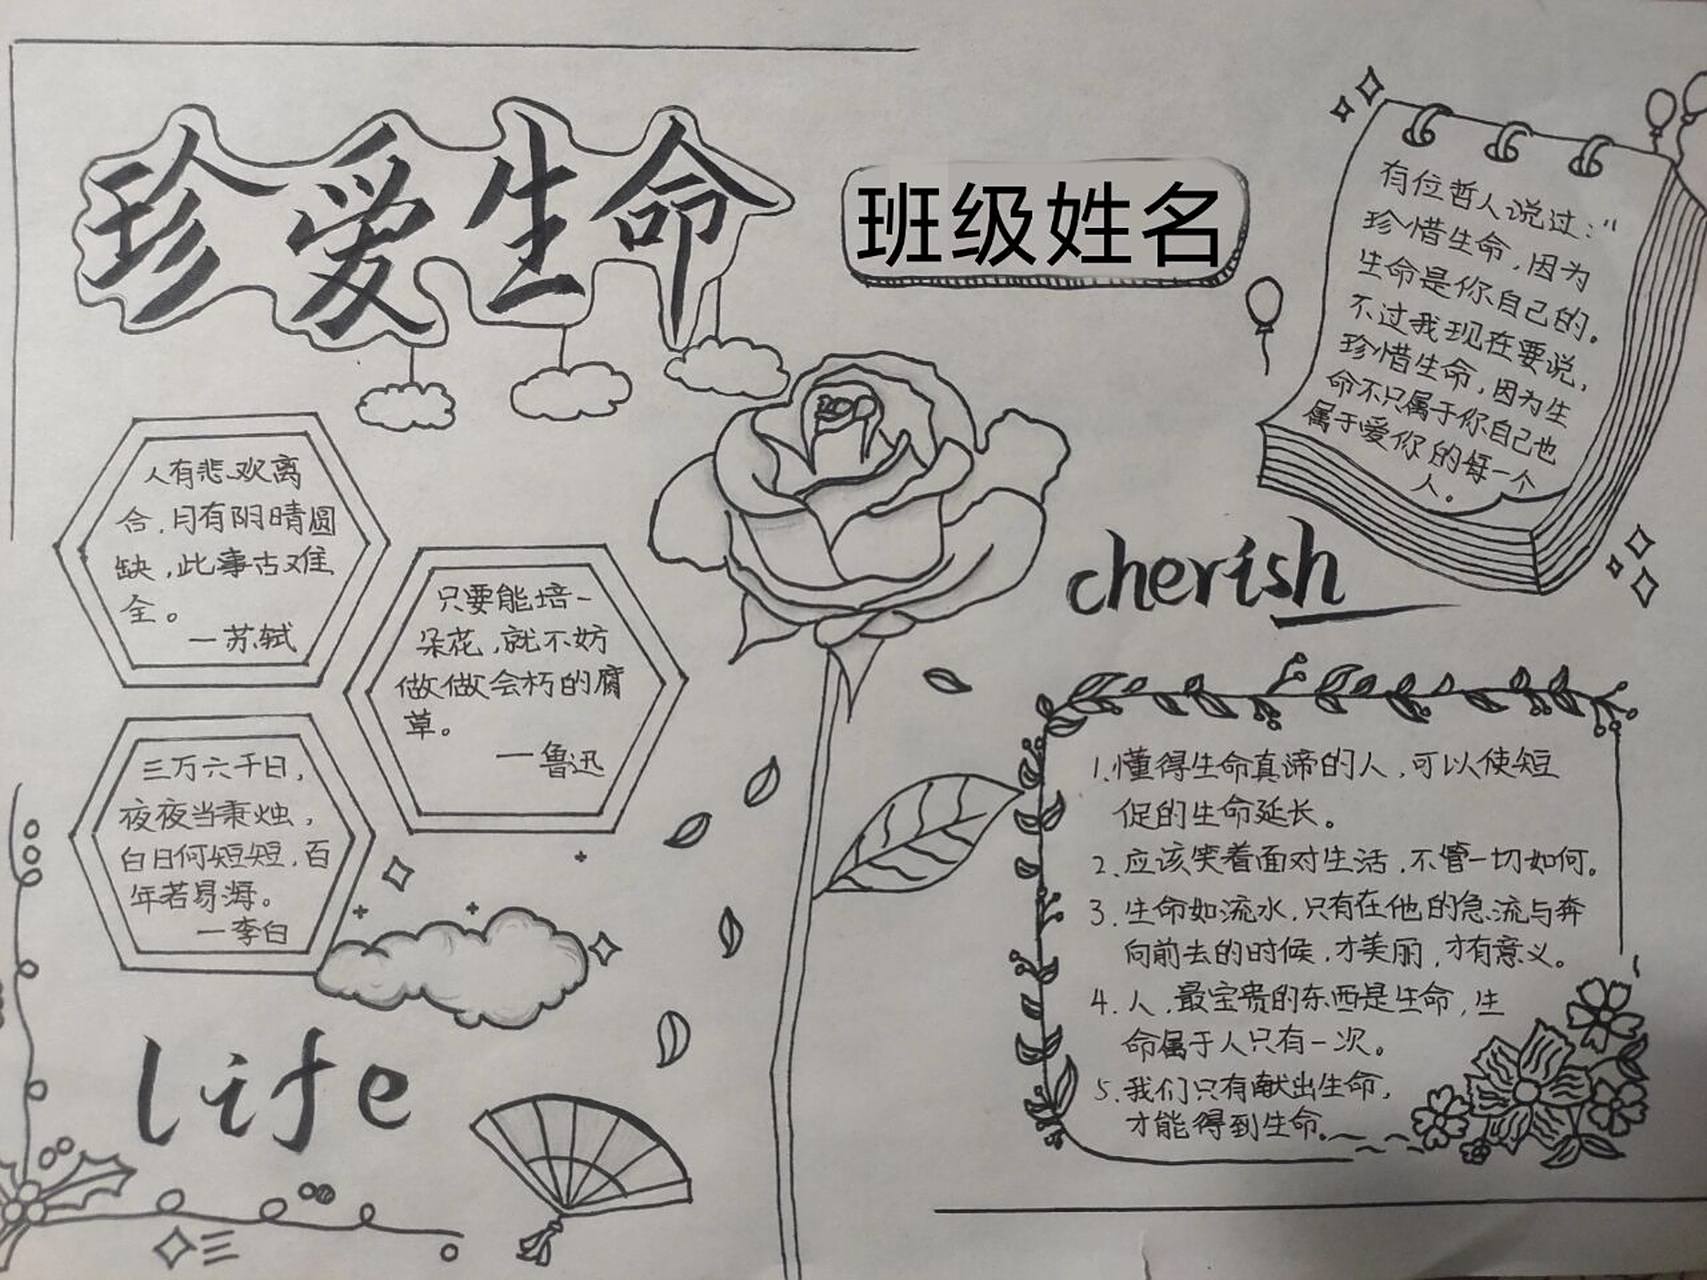 珍爱生命
班级姓名
有位哲人说过:“
珍惜生命,因为
生命是你自己的。
不过我现在要说,
珍惜生命,因为生
命不只属于你自己也
属于爱你的每一个
人。
人有悲欢离
合,月有阴晴圆
缺,此事古难
全。
—苏轼
只要能培一
朵花,就不妨
做做会朽的腐
草。
—鲁迅
三万六千日,
夜夜当秉烛,
白日何短短,百
年若易海。
—李白
cherish
1.懂得生命真谛的人,可以使短
促的生命延长。
2.应该笑着面对生活,不管一切如何。
3.生命如流水,只有在他的急流与奔
向前去的时候,才美丽,才有意义。
4.人,最宝贵的东西是生命,生
命属于人只有一次。
5.我们只有献出生命,
才能得到生命。
life